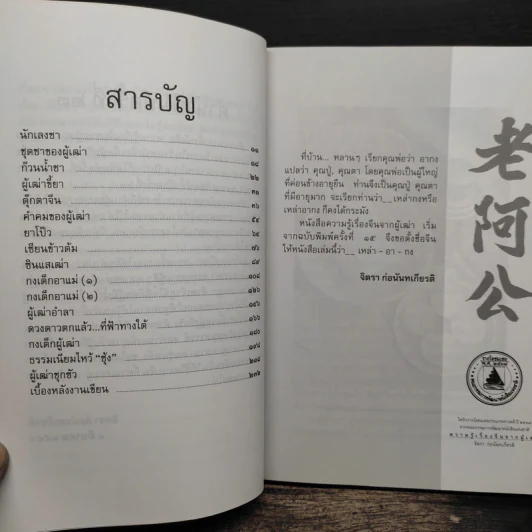 สารบัญ
นักเลงชา ๑๑
ชุดชาของผู้เฒ่า ๑๘
ก๊วนน้ำชา ๒๒
ผู้เฒ่าขี้ยา ๓๑
ตุ๊กตาจีน ๓๖
คำคมของผู้เฒ่า ๕๔
ยาโป๊ว ๖๕
เซียนข้าวต้ม ๗๖
ซินแสเฒ่า
กงเต็กอาแม่ (๑) ๑๐๔
กงเต็กอาแม่ (๒) ๑๐๘
ผู้เฒ่าอำลา
ดวงดาวตกแล้ว...ที่ฟ้าทางใต้ ๑๖๖
กงเต็กผู้เฒ่า
ธรรมเนียมไหว้ "ซุ้ง"
ผู้เฒ่าซุกซัว
เบื้องหลังงานเขียน ๒๓๒
ที่บ้าน... หลานๆ เรียกคุณพ่อว่า อากง
แปลว่า คุณปู่, คุณตา โดยคุณพ่อเป็นผู้ใหญ่
ที่ค่อนข้างอายุยืน ท่านจึงเป็นคุณปู่ คุณตา
ที่มีอายุมาก จะเรียกท่านว่า__เหล่ากงหรือ
เหล่าอากง ก็คงได้กระมัง
หนังสือความรู้เรื่องจีนจากผู้เฒ่า เริ่ม
จากฉบับพิมพ์ครั้งที่ ๑๕ จึงขอตั้งชื่อจีน
ให้หนังสือเล่มนี้ว่า__ เหล่า - อา - กง
จิตรา ก่อนันทเกียรติ
老阿公
ความรู้เรื่องจีนจากผู้เฒ่า
จิตรา ก่อนันทเกียรติ